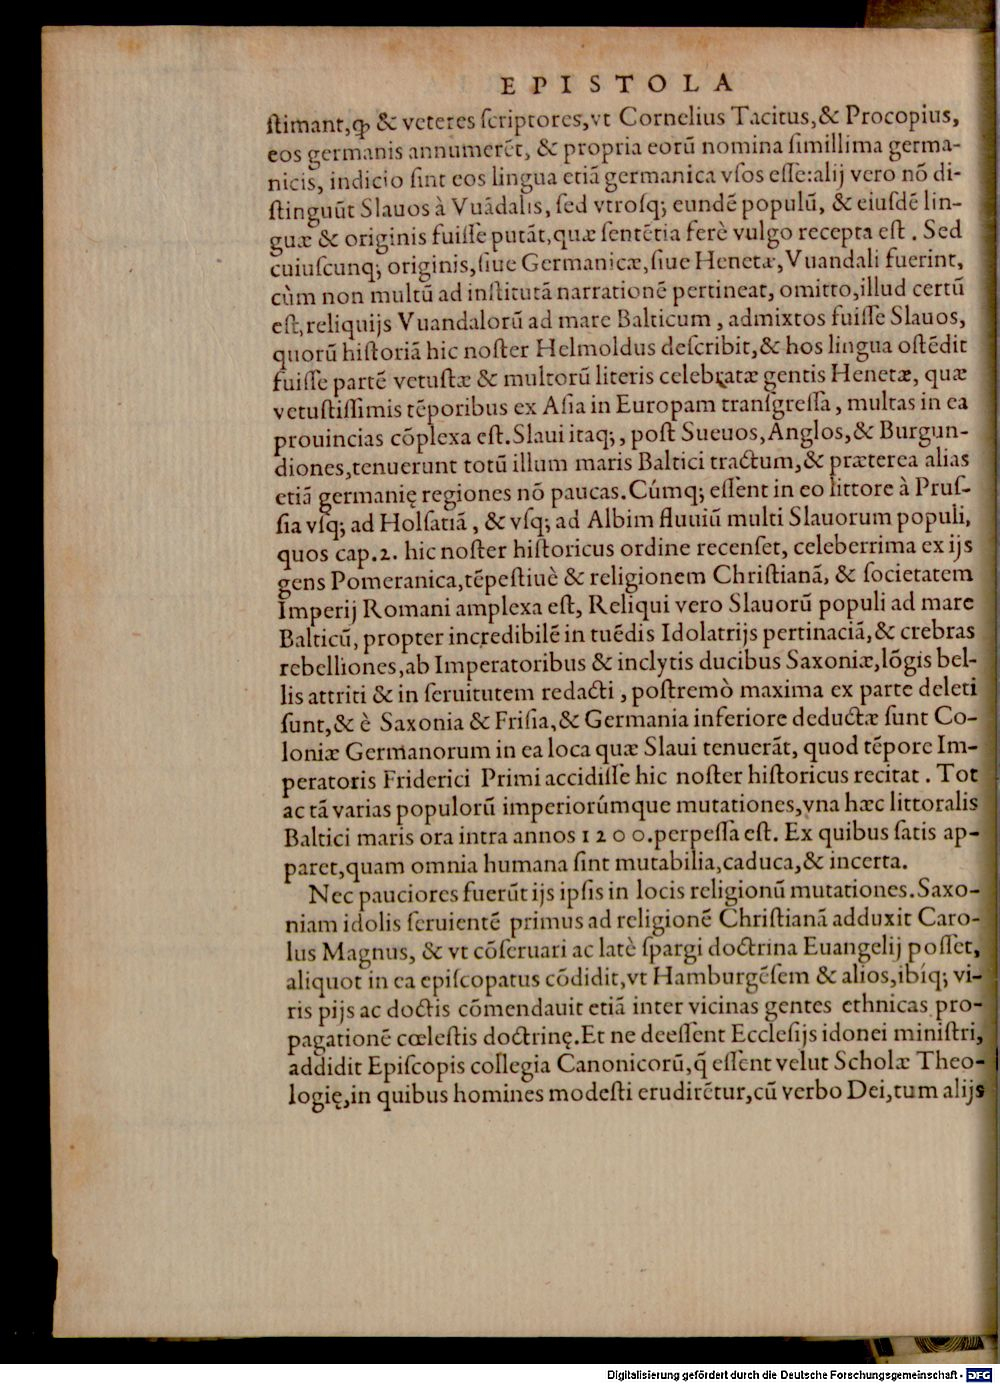 EPISTOLA
ſtimant,ꝙ & veteres ſcriptores,vt Cornelius Tacitus,& Procopius,
eos germanis annumerẽt, & propria eorũ nomina ſimillima germa-
nicis, indicio ſint eos lingua etiã germanica vſos eſſe:alij vero nõ di-
ſtinguũt Slauos à Vuãdalis, ſed vtroſq; eundẽ populũ, & eiuſdẽ lin-
guæ & originis fuiſſe putãt,quæ ſentẽtia ferè vulgo recepta eſt. Sed
cuiuſcunq; originis,ſiue Germanicæ,ſiue Henetæ,Vuandali fuerint,
cùm non multũ ad inſtitutã narrationẽ pertineat, omitto,illud certũ
eſt,reliquijs Vuandalorũ ad mare Balticum, admixtos fuiſſe Slauos,
quorũ hiſtoriã hic noſter Helmoldus deſcribit,& hos lingua oſtẽdit
fuiſſe partẽ vetuſtæ & multorũ literis celebratæ gentis Henetæ, quæ
vetuſtiſſimis tẽporibus ex Aſia in Europam tranſgreſſa, multas in ea
prouincias cõplexa eſt.Slaui itaq;, poſt Sueuos,Anglos,& Burgun-
diones,tenuerunt totũ illum maris Baltici tractum,& præterea alias
etiã germanię regiones nõ paucas.Cúmq; eſſent in eo littore à Pruſ-
ſia vſq; ad Holſatiã, & vſq; ad Albim fluuiũ multi Slauorum populi,
quos cap.2. hic noſter hiſtoricus ordine recenſet, celeberrima ex ijs
gens Pomeranica,tẽpeſtiuè & religionem Chriſtianã, & ſocietatem
Imperij Romani amplexa eſt, Reliqui vero Slauorũ populi ad mare
Balticũ, propter incredibilẽ in tuẽdis Idolatrijs pertinaciã,& crebras
rebelliones,ab Imperatoribus & inclytis ducibus Saxoniæ,lõgis bel-
lis attriti & in ſeruitutem redacti, poſtremò maxima ex parte deleti
ſunt,& è Saxonia & Friſia,& Germania inferiore deductæ ſunt Co-
loniæ Germanorum in ea loca quæ Slaui tenuerãt, quod tẽpore Im-
peratoris Friderici Primi accidiſſe hic noſter hiſtoricus recitat. Tot
ac tã varias populorũ imperiorúmque mutationes,vna hæc littoralis
Baltici maris ora intra annos 1200.perpeſſa eſt. Ex quibus ſatis ap-
paret,quam omnia humana ſint mutabilia,caduca,& incerta.
Nec pauciores fuerũt ijs ipſis in locis religionũ mutationes.Saxo-
niam idolis ſeruientẽ primus ad religionẽ Chriſtianã adduxit Caro-
lus Magnus, & vt cõſeruari ac latè ſpargi doctrina Euangelij poſſet,
aliquot in ea epiſcopatus cõdidit,vt Hamburgẽſem & alios,ibíq; vi-
ris pijs ac doctis cõmendauit etiã inter vicinas gentes ethnicas pro-
pagationẽ cœleſtis doctrinę.Et ne deeſſent Eccleſijs idonei miniſtri,
addidit Epiſcopis collegia Canonicorũ,q̃ eſſent velut Scholæ Theo-
logię,in quibus homines modeſti erudirẽtur,cũ verbo Dei,tum alijs
Digitalisierung gefördert durch die Deutsche Forschungsgemeinschaft - DFG